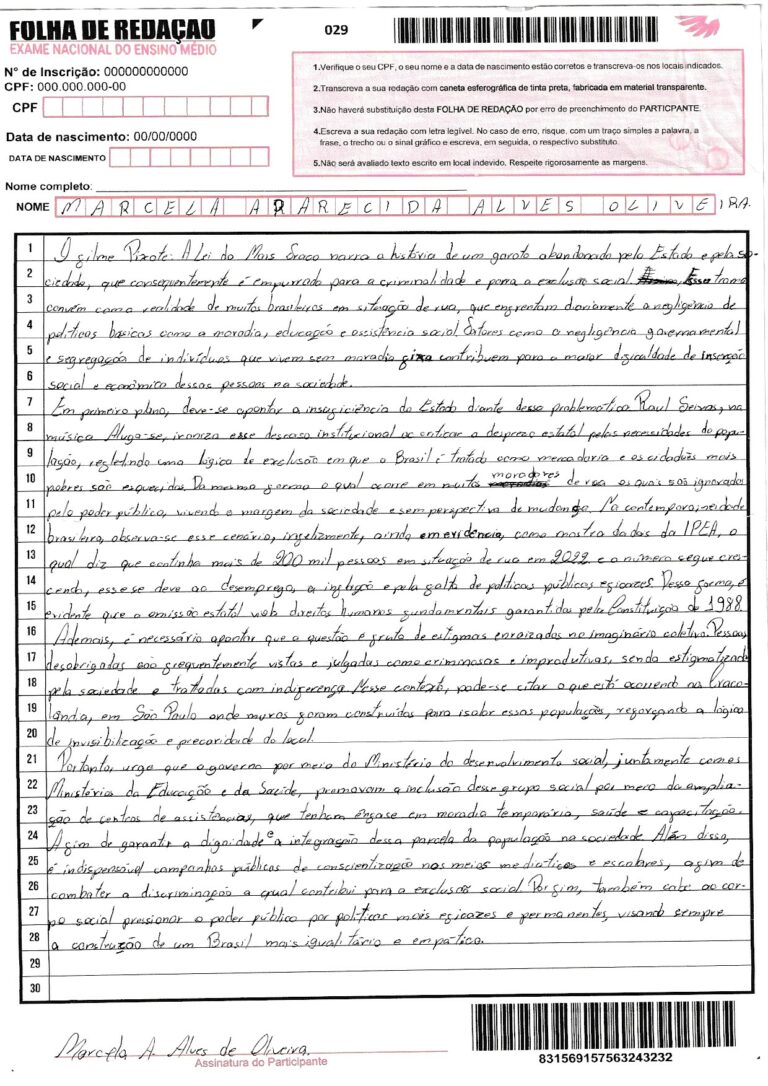 FOLHA DE REDAÇÃO
EXAME NACIONAL DO ENSINO MÉDIO
029
Nº de Inscrição: 000000000000
CPF: 000.000.000-00
CPF
Data de nascimento: 00/00/0000
DATA DE NASCIMENTO
1.Verifique o seu CPF, o seu nome e a data de nascimento estão corretos e transcreva-os nos locais indicados.
2.Transcreva a sua redação com caneta esferográfica de tinta preta, fabricada em material transparente.
3.Não haverá substituição desta FOLHA DE REDAÇÃO por erro de preenchimento do PARTICPANTE.
4.Escreva a sua redação com letra legível. No caso de erro, risque, com um traço simples a palavra, a
frase, o trecho ou o sinal gráfico e escreva, em seguida, o respectivo substituto.
5.Não será avaliado texto escrito em local indevido. Respeite rigorosamente as margens.
Nome completo:
NOME MARCELA APARECIDA ALVES OLIVEIRA.
1 O filme Pixote: A Lei do Mais Fraco narra a história de um garoto abandonado pelo Estado e pela so-
2 ciedade, que consequentemente é empurrado para a criminalidade e para a exclusão social. Essa trama
3 convém com a realidade de muitos brasileiros em situação de rua, que enfrentam diariamente a negligência de
4 políticas basicas como a moradia, educação e assistência social. Fatores como a negligência governamental
5 e segregação de indivíduos que vivem sem moradia fixa contribuem para a maior dificaldade de inserção
6 social e econômica dessas pessoas na sociedade.
7 Em primeiro plano, deve-se apontar a insuficiência do Estado diante dessa problemática. Raul Seixas, na
8 música Aluga-se, ironiza esse descaso institucional ao criticar o desprezo estatal pelas necessidades da popu-
9 lação, refletindo uma lógica de exclusão em que o Brasil é tratado como mercadoria e os cidadões mais
10 pobres são esquecidos. Da mesma forma o qual ocorre em muitos moradores de rua os quais são ignorados
11 pelo poder público, vivendo a margem da sociedade e sem perspectiva de mudança. Na contemporaineidade
12 brasileira, observa-se esse cenário, infelizmente, ainda em evidência, como mostra dados da IPEA, o
13 qual diz que continha mais de 200 mil pessoas em situação de rua em 2022 e o número segue cres-
14 cendo, esse se deve ao desemprego, a inflação e pela falta de políticas públicas eficazes. Dessa forma, é
15 evidente que a omissão estatal viola direitos humanos fundamentais garantidos pela Constituição de 1988.
16 Ademais, é necessário apontar que a questão é fruto de estigmas enraizados no imaginário coletivo. Pessoas
17 desabrigadas são frequentemente vistas e julgadas como criminosas e improdutivas, sendo estigmatizadas
18 pela sociedade e tratadas com indiferença. Nesse contexto, pode-se citar o que está ocorrendo na Craco-
19 landia, em São Paulo onde muros foram construídos para isolar essas populações, reforçando a lógica
20 de invisibilização e precaridade do local.
21 Portanto, urge que o governo por meio do Ministério do desenvolvimento social, juntamente com os
22 Ministérios da Educação e da Saúde, promovam a inclusão desse grupo social por mero da amplia-
23 ção de centros de assistencias, que tenham ênfase em moradia temporária, saúde e capacitação.
24 Afim de garantir a dignidade e a integração dessa parcela da população na sociedade. Além disso,
25 é indispensável campanhas públicas de conscientização nos meios mediáticos e escolares, afim de
26 combater a discriminação a qual contribui para a exclusão social. Por fim, também cabe ao cor-
27 po social pressionar o poder público por políticas mais eficazes e permanentes, visando sempre
28 a construção de um Brasil mais igualitário e empático.
29
30
Marcela A. Alves de Oliveira.
Assinatura do Participante
831569157563243232